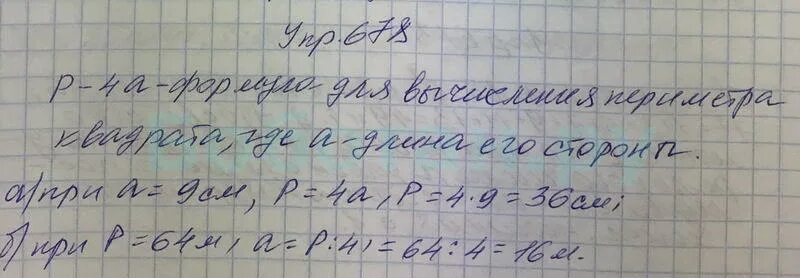 Упр. 678
P - 4a - формула для вычисления периметра
квадрата, где a - длина его стороны.
а) при a = 9см, P = 4a, P = 4·9 = 36см;
б) при P = 64м, a = P:4; = 64:4 = 16м.